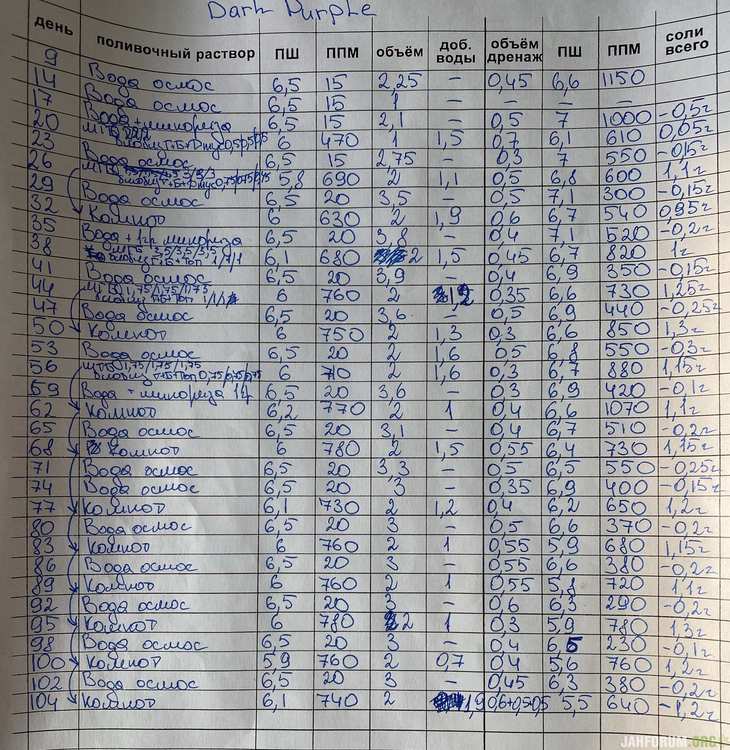 Dark Purple
день поливочный раствор ПШ ППМ объём доб. воды объём дренаж ПШ ППМ соли всего
9
14 Вода осмос 6,5 15 2,25 – 0,45 6,6 1150
17 Вода осмос 6,5 15 1 – – – –
20 Вода+микориза 6,5 15 2,1 – 0,5 7 1000 -0,5г
23 6 470 1 1,5 0,7 6,1 610 0,05г
26 Вода осмос 6,5 15 2,75 – 0,3 7 550 -0,15г
29 5,8 690 2 1,1 0,5 6,8 600 1,1г
32 Вода осмос 6,5 20 3,5 – 0,5 7,1 300 -0,15г
35 Компот 6 630 2 1,9 0,6 6,7 540 0,95г
38 Вода + 1гр микориза 6,5 20 3,8 – 0,4 7,1 520 -0,2г
41 6,1 680 2 1,5 0,45 6,7 820 1г
44 Вода осмос 6,5 20 3,9 – 0,4 6,9 350 -0,15г
47 6 760 2 1,2 0,35 6,6 730 1,25г
50 Вода осмос 6,5 20 3,6 – 0,5 6,9 440 -0,25г
Компот 6 750 2 1,3 0,3 6,6 850 1,3г
53 Вода осмос 6,5 20 2 1,6 0,5 6,8 550 -0,3г
56 6 710 2 1,6 0,3 6,7 880 1,15г
59 Вода + микориза 1гр 6,5 20 3,6 – 0,3 6,9 420 -0,1г
62 Компот 6,2 770 2 1 0,4 6,6 1070 1,1г
65 Вода осмос 6,5 20 3,1 – 0,4 6,7 510 -0,2г
68 Компот 6 780 2 1,5 0,55 6,4 730 1,15г
71 Вода осмос 6,5 20 3,3 – 0,5 6,5 550 -0,25г
74 Вода осмос 6,5 20 3 – 0,35 6,9 400 -0,15г
77 Компот 6,1 730 2 1,2 0,4 6,2 650 1,2г
80 Вода осмос 6,5 20 3 – 0,5 6,6 370 -0,2г
83 Компот 6 760 2 1 0,55 5,9 680 1,15г
86 Вода осмос 6,5 20 3 – 0,55 6,6 380 -0,2г
89 Компот 6 760 2 1 0,55 5,8 720 1,1г
92 Вода осмос 6,5 20 3 – 0,6 6,3 290 -0,2г
95 Компот 6 780 2 1 0,3 5,9 780 1,3г
98 Вода осмос 6,5 20 3 – 0,4 6,5 230 -0,1г
100 Компот 5,9 760 2 0,7 0,4 5,6 760 1,2г
102 Вода осмос 6,5 20 3 – 0,45 6,3 380 -0,2г
104 Компот 6,1 740 2 1,9 0,6+0,5+0,5 5,5 640 -1,2г
JAHFORUM.ORG